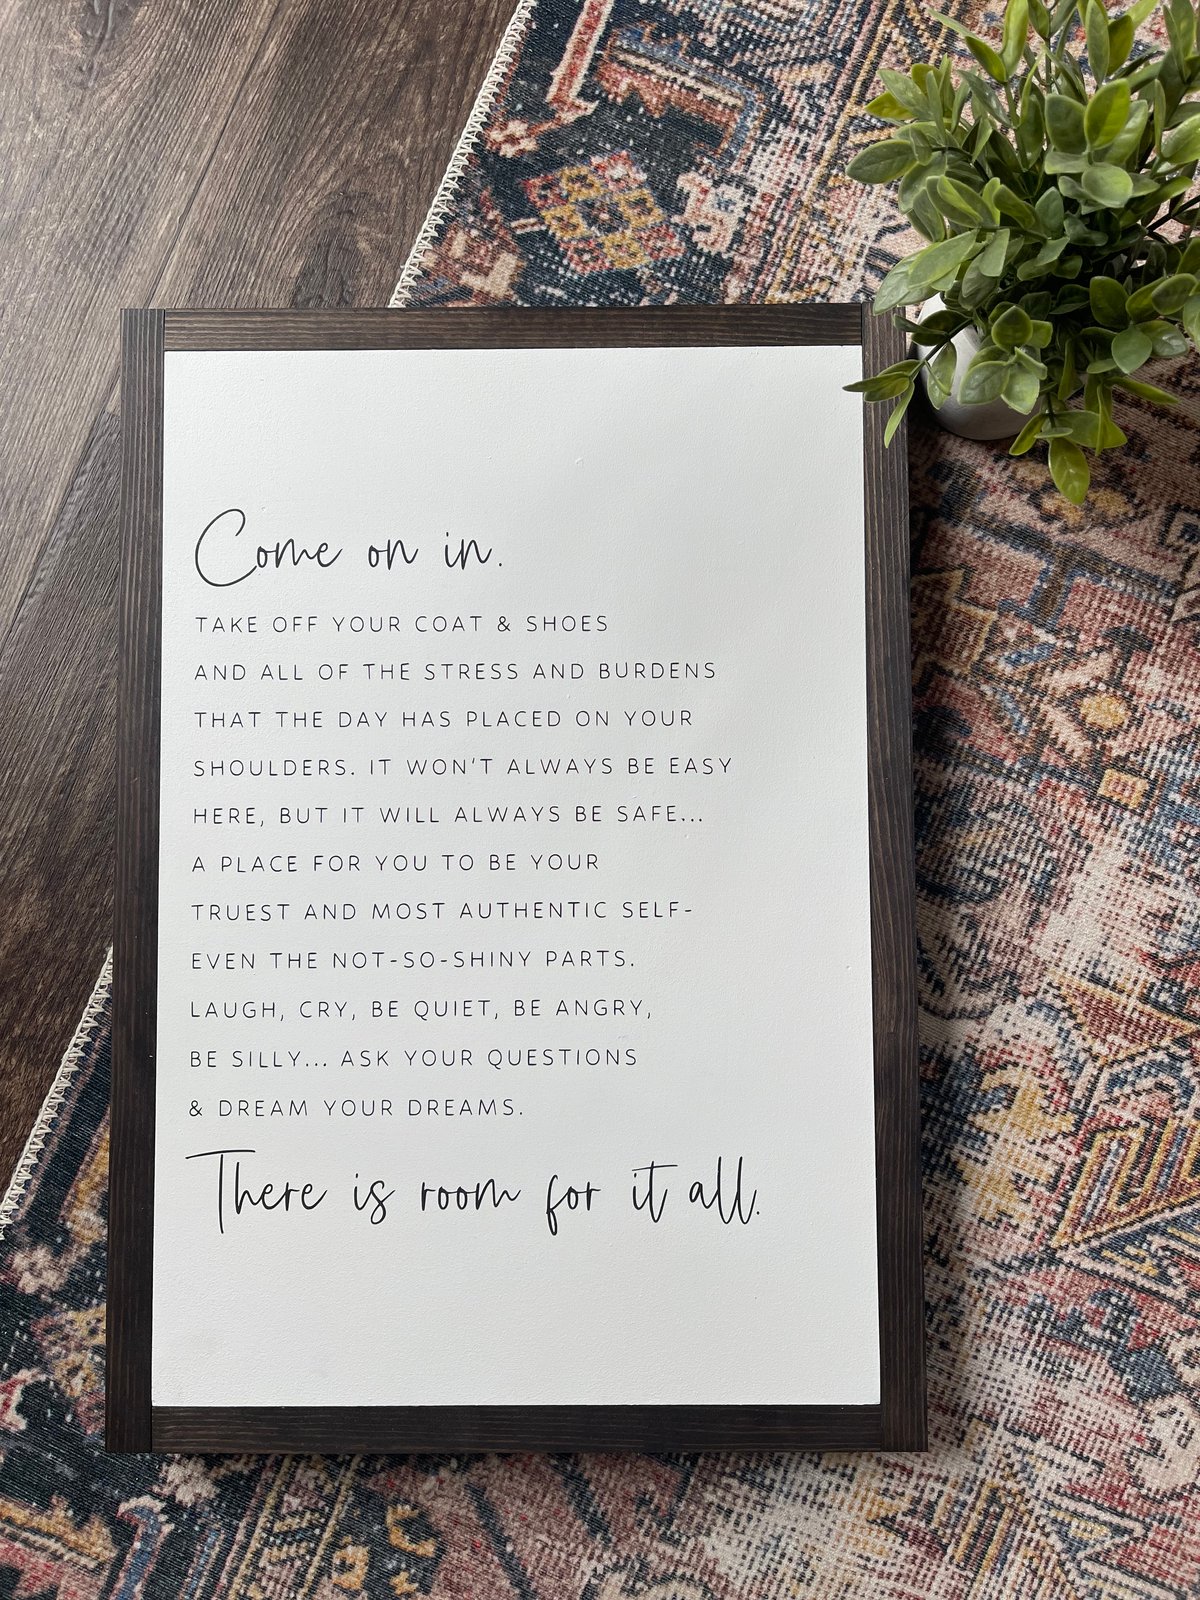 Come on in.
TAKE OFF YOUR COAT & SHOES
AND ALL OF THE STRESS AND BURDENS
THAT THE DAY HAS PLACED ON YOUR
SHOULDERS. IT WON'T ALWAYS BE EASY
HERE, BUT IT WILL ALWAYS BE SAFE...
A PLACE FOR YOU TO BE YOUR
TRUEST AND MOST AUTHENTIC SELF-
EVEN THE NOT-SO-SHINY PARTS.
LAUGH, CRY, BE QUIET, BE ANGRY,
BE SILLY... ASK YOUR QUESTIONS
& DREAM YOUR DREAMS.
There is room for it all.